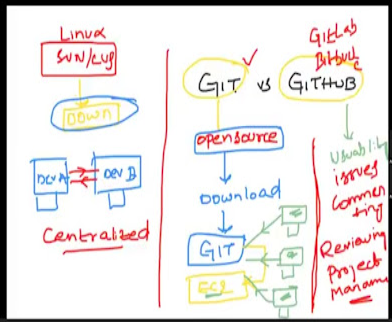 Linux
SVN/CVS
DOWN
DEV A
DEV B
Centralized
GIT vs GITHUB
GitLab
opensource
Download
GIT
EC2
Usability
issues
Commen
ting
Reviewing
Project
Manam